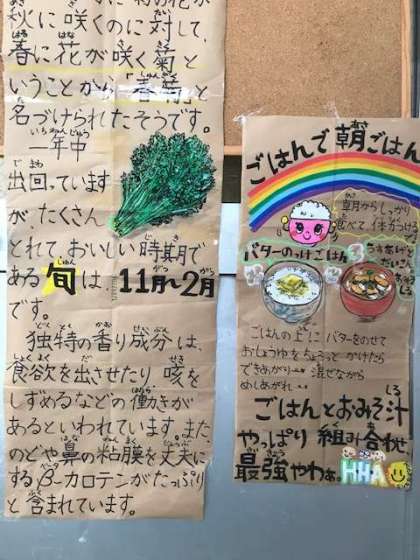 秋に咲くのに対して、
春に花が咲く菊と
いうことから「春菊」と
名づけられたそうです。
一年中
出回っています
がたくさん
とれておいしい時期で
ある旬は、11月〜2月
です。
独特の香り成分は、
食欲を出させたり咳を
しずめるなどの働きが
あるといわれています。また、
のどや鼻の粘膜を丈夫に
するβ-カロテンがたっぷり
と含まれています。
ごはんで朝ごはん
朝からしっかり
食べて体力つける
バターのっけごはん
ごはんの上にバターをのせて
おしょうゆをちょろっとかけたら
できあがり 混ぜながら
めしあがれ
ごはんとおみそ汁
やっぱり組み合わせ
最強やわぁ。HHA